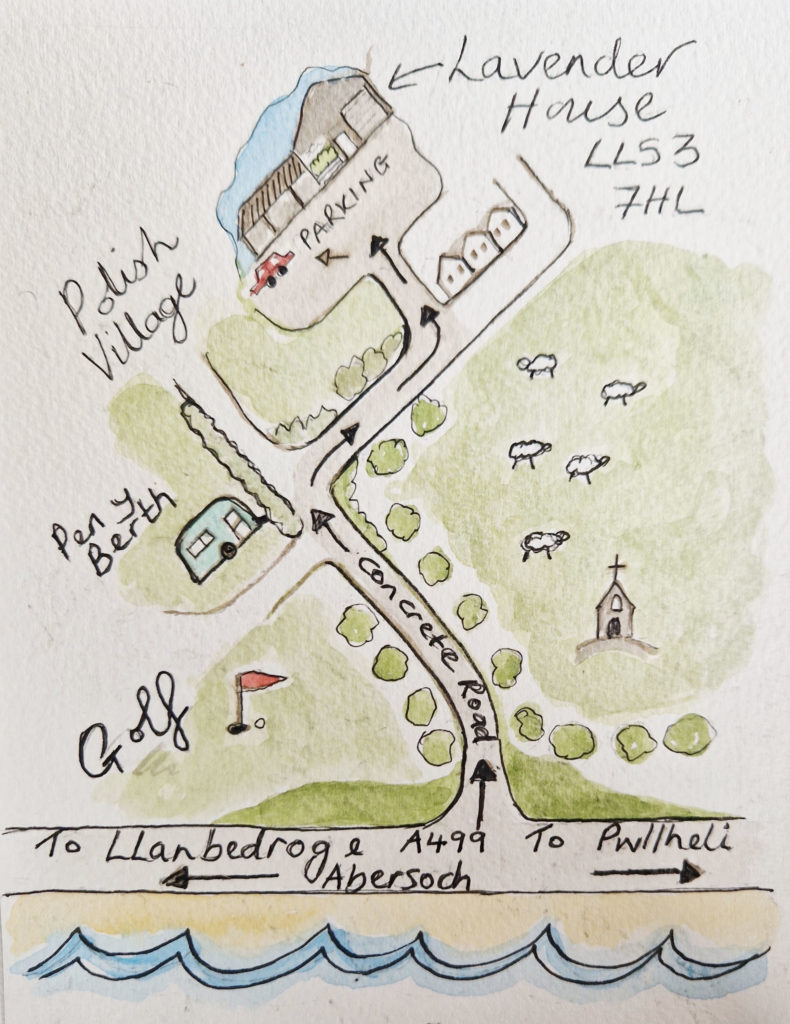 Lavender
House
LL53
7HL
PARKING
Polish
Village
Pen y
Berth
Concrete Road
Golf
To Llanbedrog & A499 To Pwllheli
Abersoch